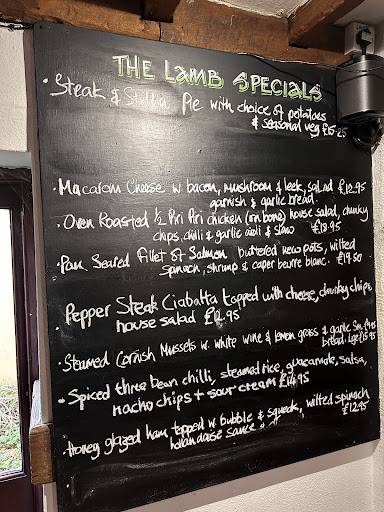 THE LAMB SPECIALS
• Steak & Stilton Pie with choice of potatoes
& seasonal veg £15.25
• Macaroni Cheese w bacon, mushroom & leek, salad £12.95
garnish & garlic bread.
• Oven Roasted 1/2 Piri Piri chicken (on bone) house salad, chunky
chips, chilli & garlic aioli & slaw £18.95
• Pan Seared Fillet of Salmon buttered new pots, wilted
spinach, shrimp & caper beurre blanc. £19.50
• Pepper Steak Ciabatta topped with cheese, chunky chips,
house salad £12.95
• Steamed Cornish Mussels w. white wine & lemon grass & garlic Sm.
bread. Lge £15.95
• Spiced three bean chilli, steamed rice, guacamole, salsa,
nacho chips + sour cream £14.95
• Honey glazed ham topped w bubble & squeak, wilted spinach
hollandaise sauce £12.95